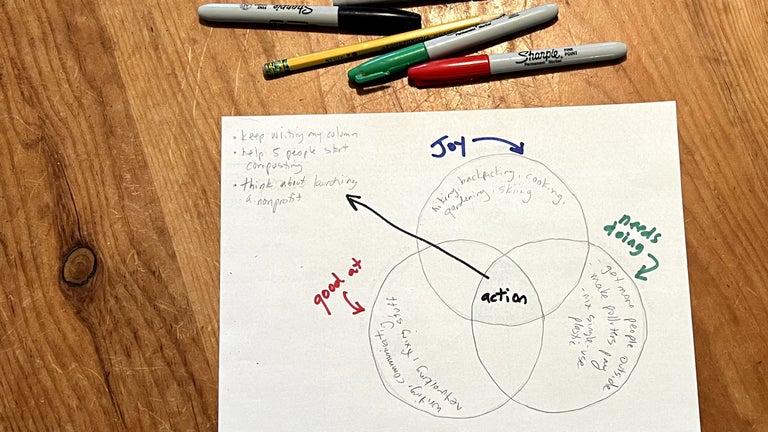 Sharpie
FINE POINT
Permanent Marker
• keep writing my column
• help 5 people start
composting
• think about launching
a nonprofit
Joy
hiking, backpacking, cooking,
gardening, skiing
needs
doing
- get more people outside
- make polluters pay
- nix single-use
plastic
good at
writing, communicating
networking, fixing stuff
action